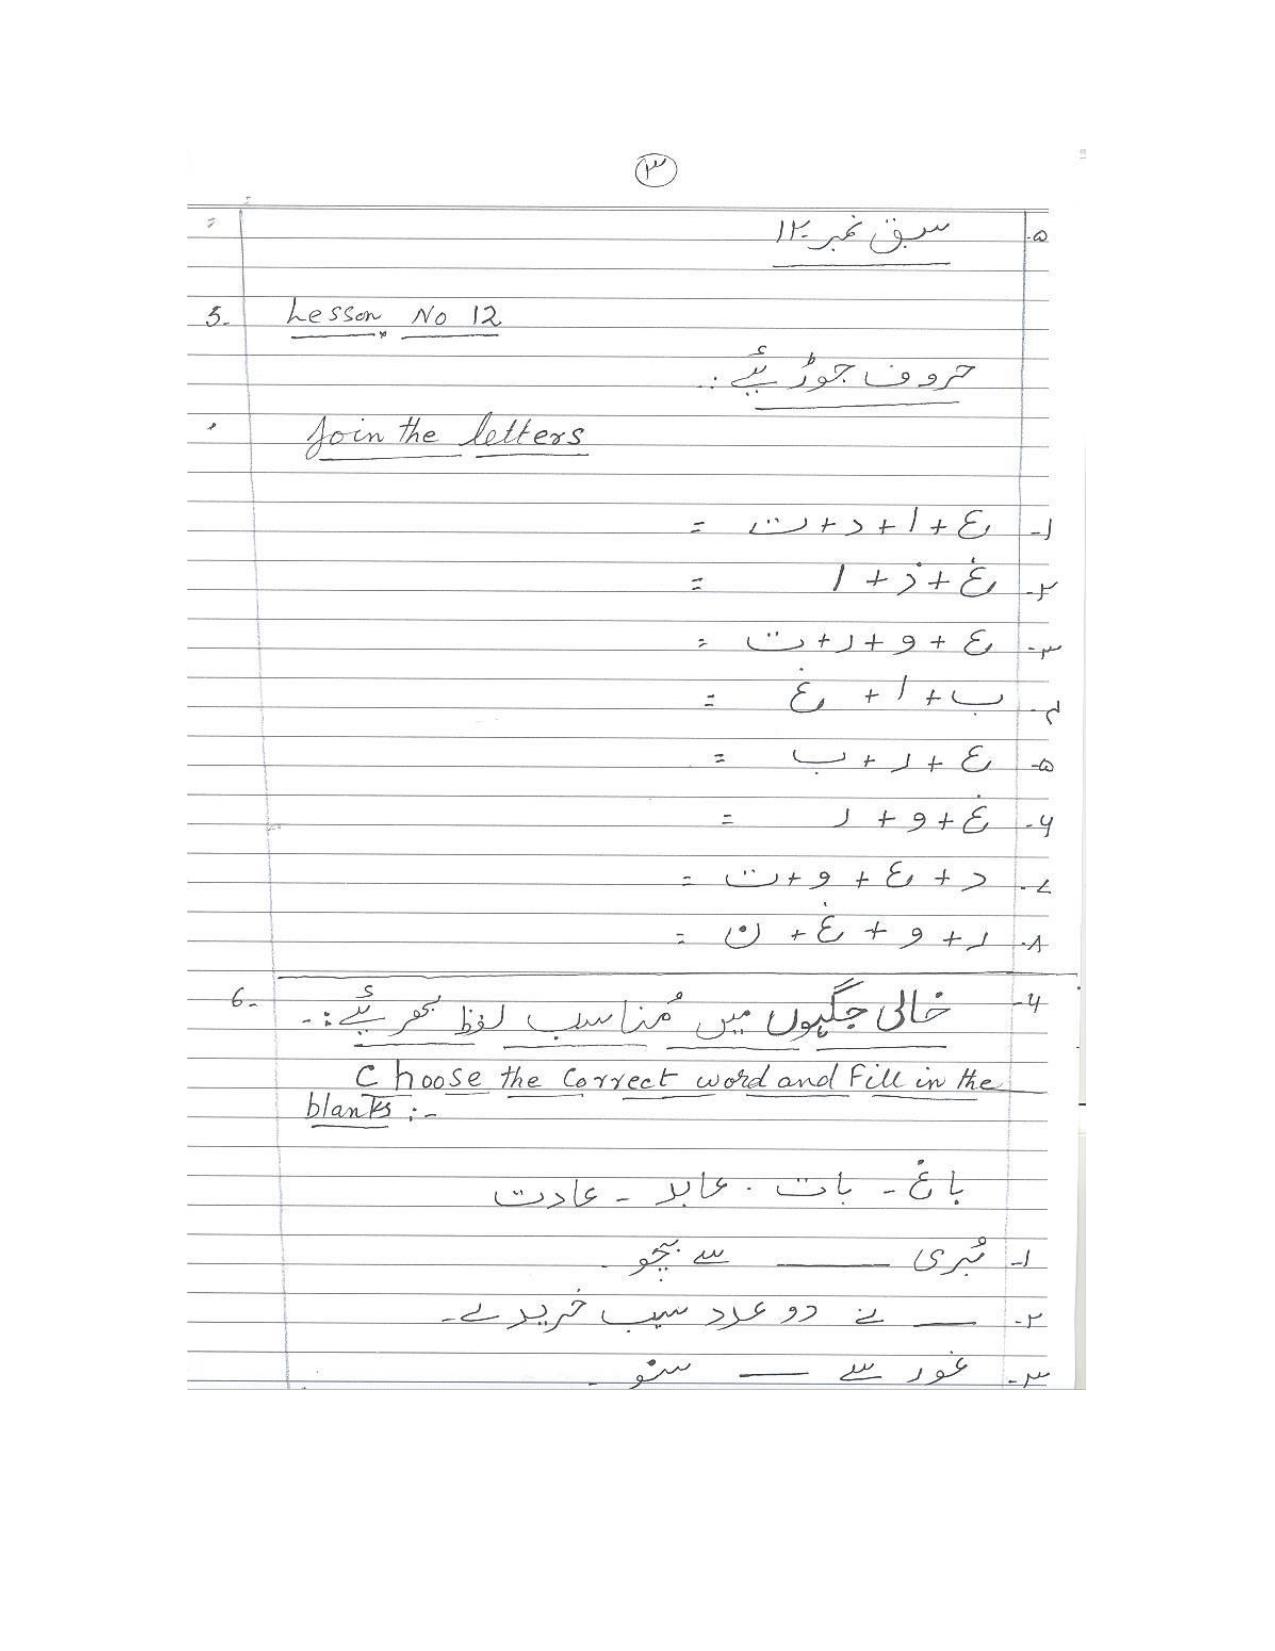 ۳
۵- سبق نمبر-۱۲
5. Lesson No 12
حروف جوڑیئے :.
Join the letters
۱- ع + ا + د + ت =
۲- غ + ذ + ا =
۳- ع + و + ر + ت =
۴- ب + ا + غ =
۵- ع + ر + ب =
۶- غ + و + ر =
۷- د + ع + و + ت =
۸- ر + و + غ + ن =
6. ۶- خالی جگہوں میں مُناسب لفظ بھریئے :-
Choose the Correct word and Fill in the
blanks :-
باغ - بات - عابد - عادت
۱- بُری ــــــ سے بچو-
۲- ــــــ نے دو عدد سیب خریدے-
۳- غور سے ــــــ سنو-